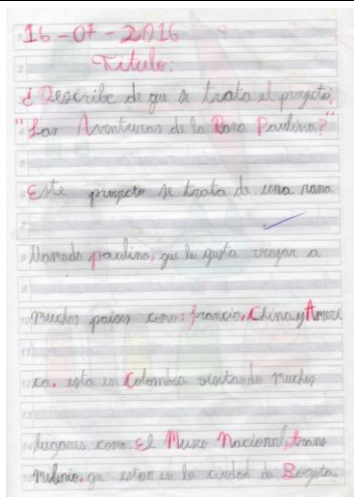 16-07-2016
Titulo:
¿Describe de que se trata el proyecto,
"Las Aventuras de la Rana Paulina?"
Este proyecto se trata de una rana
llamada paulina, que le gusta viajar a
muchos paises como: francia, China y Ameri
ca. esta en Colombia visitando muchos
lugares como: El Museo Nacional, trans
milenio, que estan en la ciudad de Bogota.